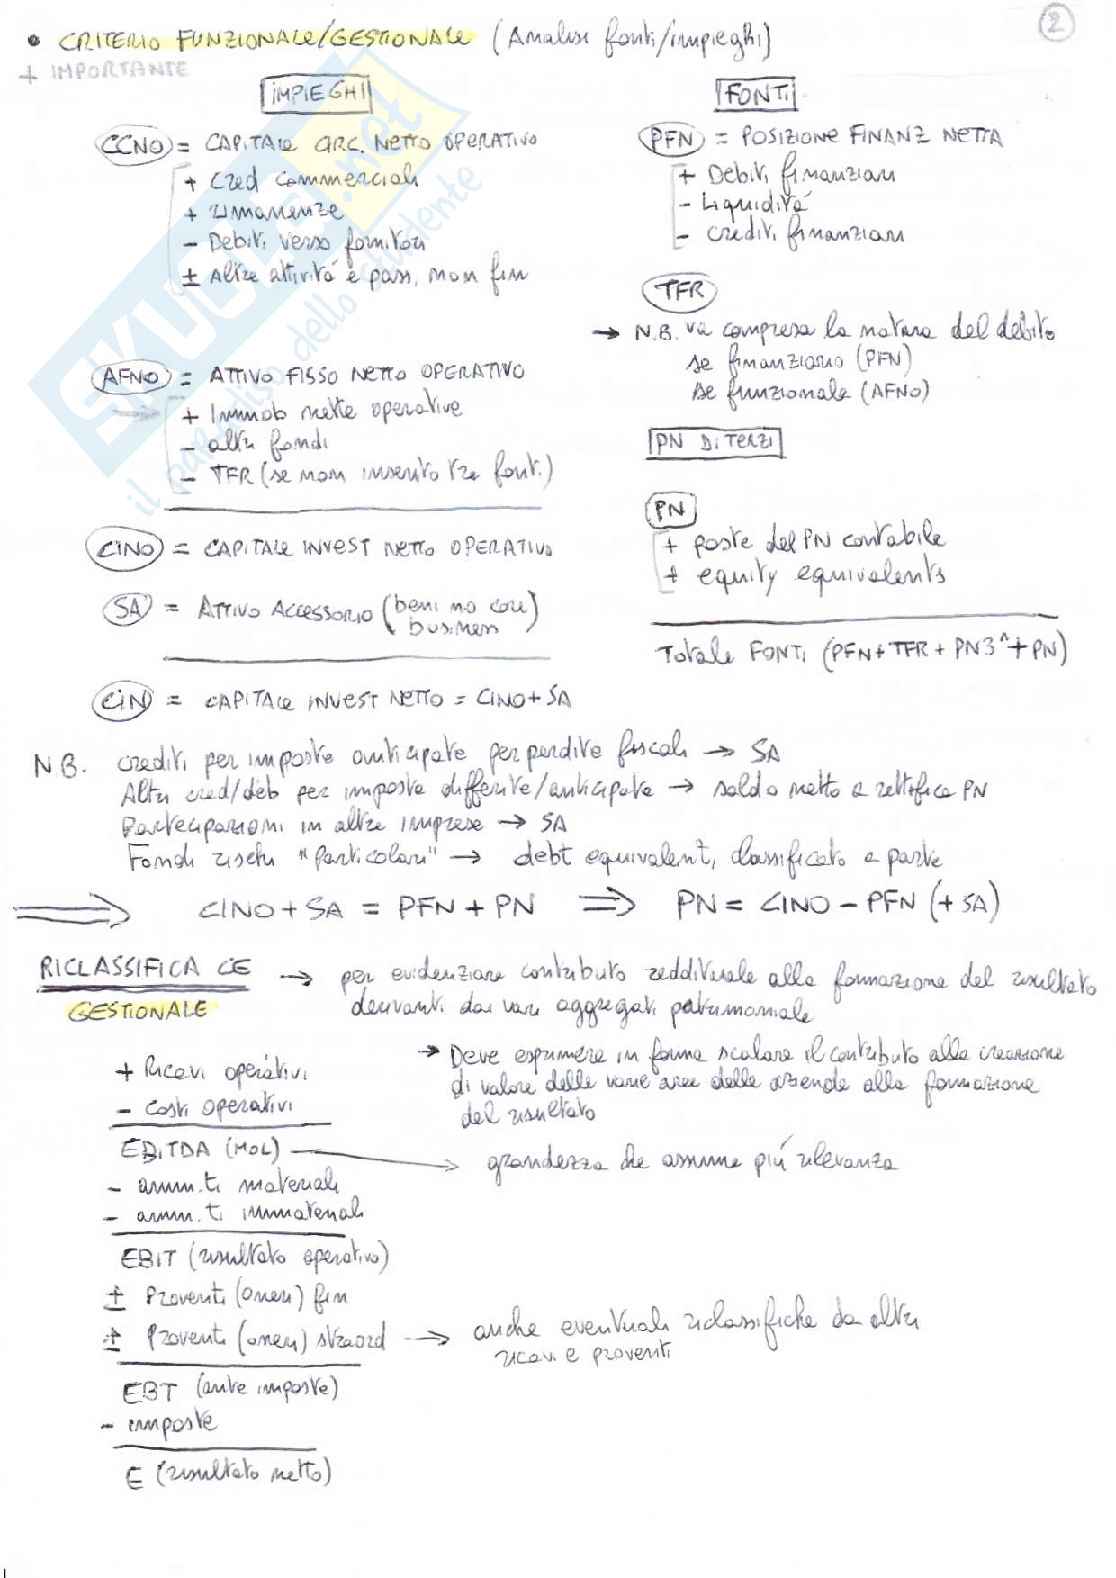 2
• CRITERIO FUNZIONALE/GESTIONALE (Analisi fonti/impieghi)
+ IMPORTANTE
IMPIEGHI
CCNO = CAPITALE CIRC. NETTO OPERATIVO
+ Cred commerciali
+ rimanenze
- Debiti verso fornitori
± Altre attività e pass. non fin
AFNO = ATTIVO FISSO NETTO OPERATIVO
+ Immob nette operative
- altri fondi
- TFR (se non inserito tra fonti)
CINO = CAPITALE INVEST NETTO OPERATIVO
SA = ATTIVO ACCESSORIO (beni no core business)
CIN = CAPITALE INVEST NETTO = CINO + SA
FONTI
PFN = POSIZIONE FINANZ NETTA
+ Debiti finanziari
- Liquidità
- crediti finanziari
TFR
→ N.B. va compresa la natura del debito
se finanziario (PFN)
se funzionale (AFNO)
PN DI TERZI
PN
+ poste del PN contabile
+ equity equivalents
Totale FONTI (PFN + TFR + PN 3^ + PN)
N.B. crediti per imposte anticipate per perdite fiscali → SA
Altri cred/deb per imposte differite/anticipate → saldo netto a rettifica PN
Partecipazioni in altre imprese → SA
Fondi rischi "particolari" → debt equivalent, classificato a parte
⇒ CINO + SA = PFN + PN ⇒ PN = CINO - PFN (+ SA)
RICLASSIFICA CE → per evidenziare contributo reddituale alla formazione del risultato
GESTIONALE derivanti dai vari aggregati patrimoniale
→ Deve esprimere in forma scalare il contributo alla creazione
di valore delle varie aree delle aziende alla formazione
del risultato
+ Ricavi operativi
- costi operativi
EBITDA (MOL) → grandezza che assume più rilevanza
- amm.ti materiali
- amm.ti immateriali
EBIT (risultato operativo)
± Proventi (oneri) fin
± Proventi (oneri) straord → anche eventuali riclassifiche da altri
ricavi e proventi
EBT (ante imposte)
- imposte
E (risultato netto)
SKUOLA.net
il paradiso dello studente